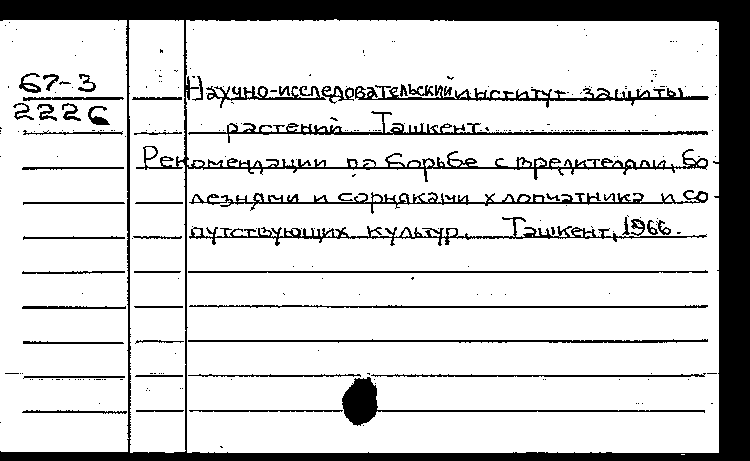 67-3
2226
Научно-исследовательский институт защиты
растений Ташкент.
Рекомендации по борьбе с вредителями, бо-
лезнями и сорняками хлопчатника и со-
путствующих культур. Ташкент, 1966.